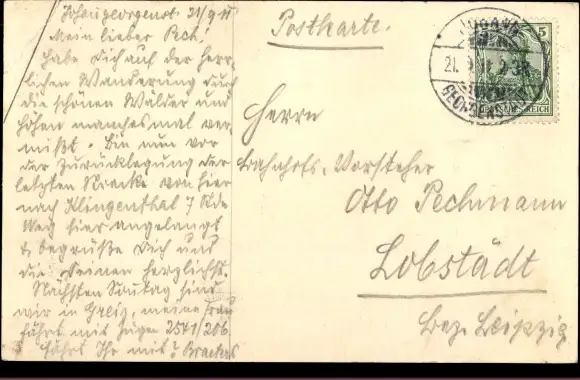 Johanngeorgenst. 21/9 11
Mein lieber Pech!
Habe Dich auf der herr-
lichen Wanderung durch
die schönen Wälder und
Höhen manches mal ver-
mißt. Bin nun vor
der Zurücklegung der
letzten Strecke von hier
nach Klingenthal 7 Stde
Weg hier angelangt
& begrüße Dich und
die Deinen herzlichst.
Nächsten Sonntag sind
wir in Greiz, meine Frau
fährt mit Zügen 2541/206.
Fährt Ihr mit?
Postkarte.
5
DEUTSCHES REICH
Herrn
Bahnhofs-Vorsteher
Otto Pechmann
Lobstädt
Bez. Leipzig